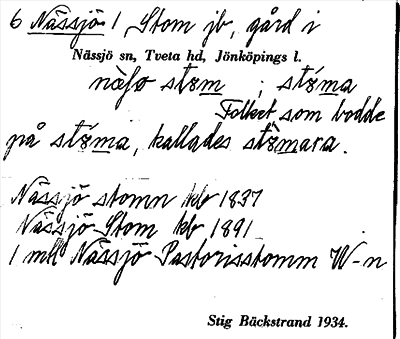 6 Nässjö 1 Stom jb, gård i
Nässjö sn, Tveta hd, Jönköpings l.
stǿma
Folket som bodde
på stǿma, kallades stǿmara.
Nässjö stomn kb 1837
Nässjö Stom kb 1891
1 mtl Nässjö Pastorisstomm W-n
Stig Bäckstrand 1934.